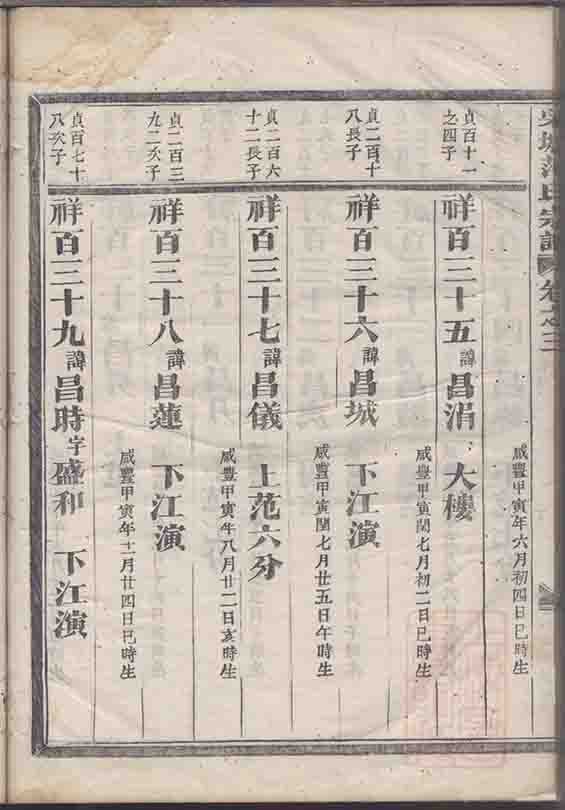 城范氏宗譜 卷之三
咸豐甲寅年六月初四日巳時生
貞百十一
之四子
祥百三十五 諱昌涓 大樓
咸豐甲寅閏七月初二日巳時生
貞二百十
八長子
祥百三十六 諱昌城 下江演
咸豐甲寅閏七月廿五日午時生
貞二百六
十二長子
祥百三十七 諱昌儀 上范六分
咸豐甲寅年八月廿二日亥時生
貞二百三
九二次子
祥百三十八 諱昌蓮 下江演
咸豐甲寅年十一月廿四日巳時生
貞百七十
八次子
祥百三十九 諱昌時字盛和 下江演